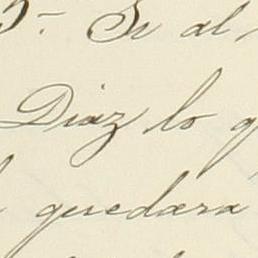 5º- Si al
Diaz lo q
quedara